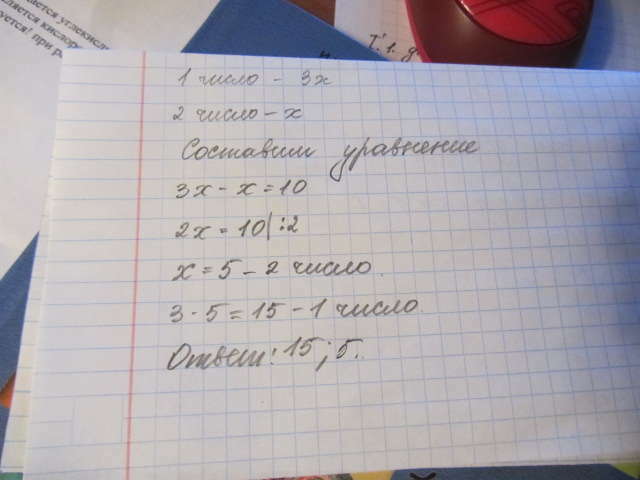 ается углекисл
ляется кислор
уется! при р
1 число - 3x
2 число - x
Составим уравнение
3x - x = 10
2x = 10 | :2
x = 5 - 2 число.
3 · 5 = 15 - 1 число.
Ответ: 15; 5.